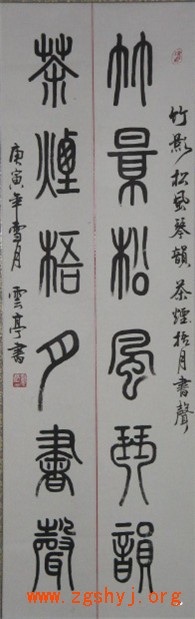 竹影松風琴韻茶煙梧月書聲
竹景松風琴韻
茶煙梧月書聲
庚寅年雪月 雲亭書
www.zgshyj.org